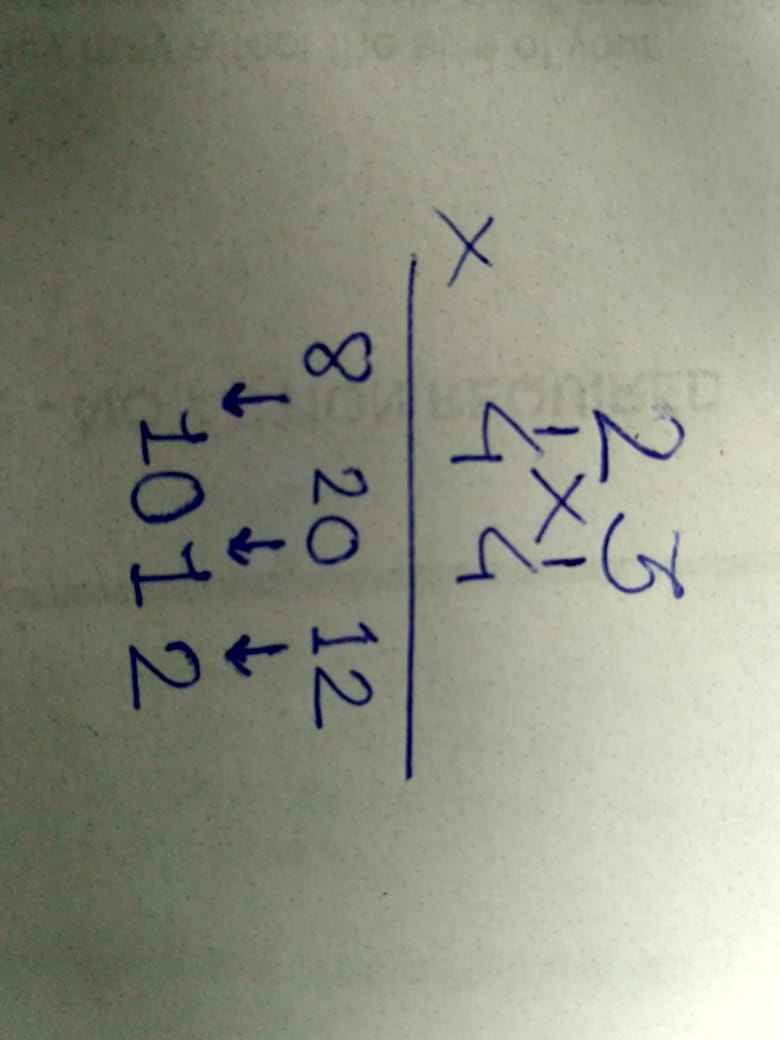 2 3
4 4
×
8 20 12
1012